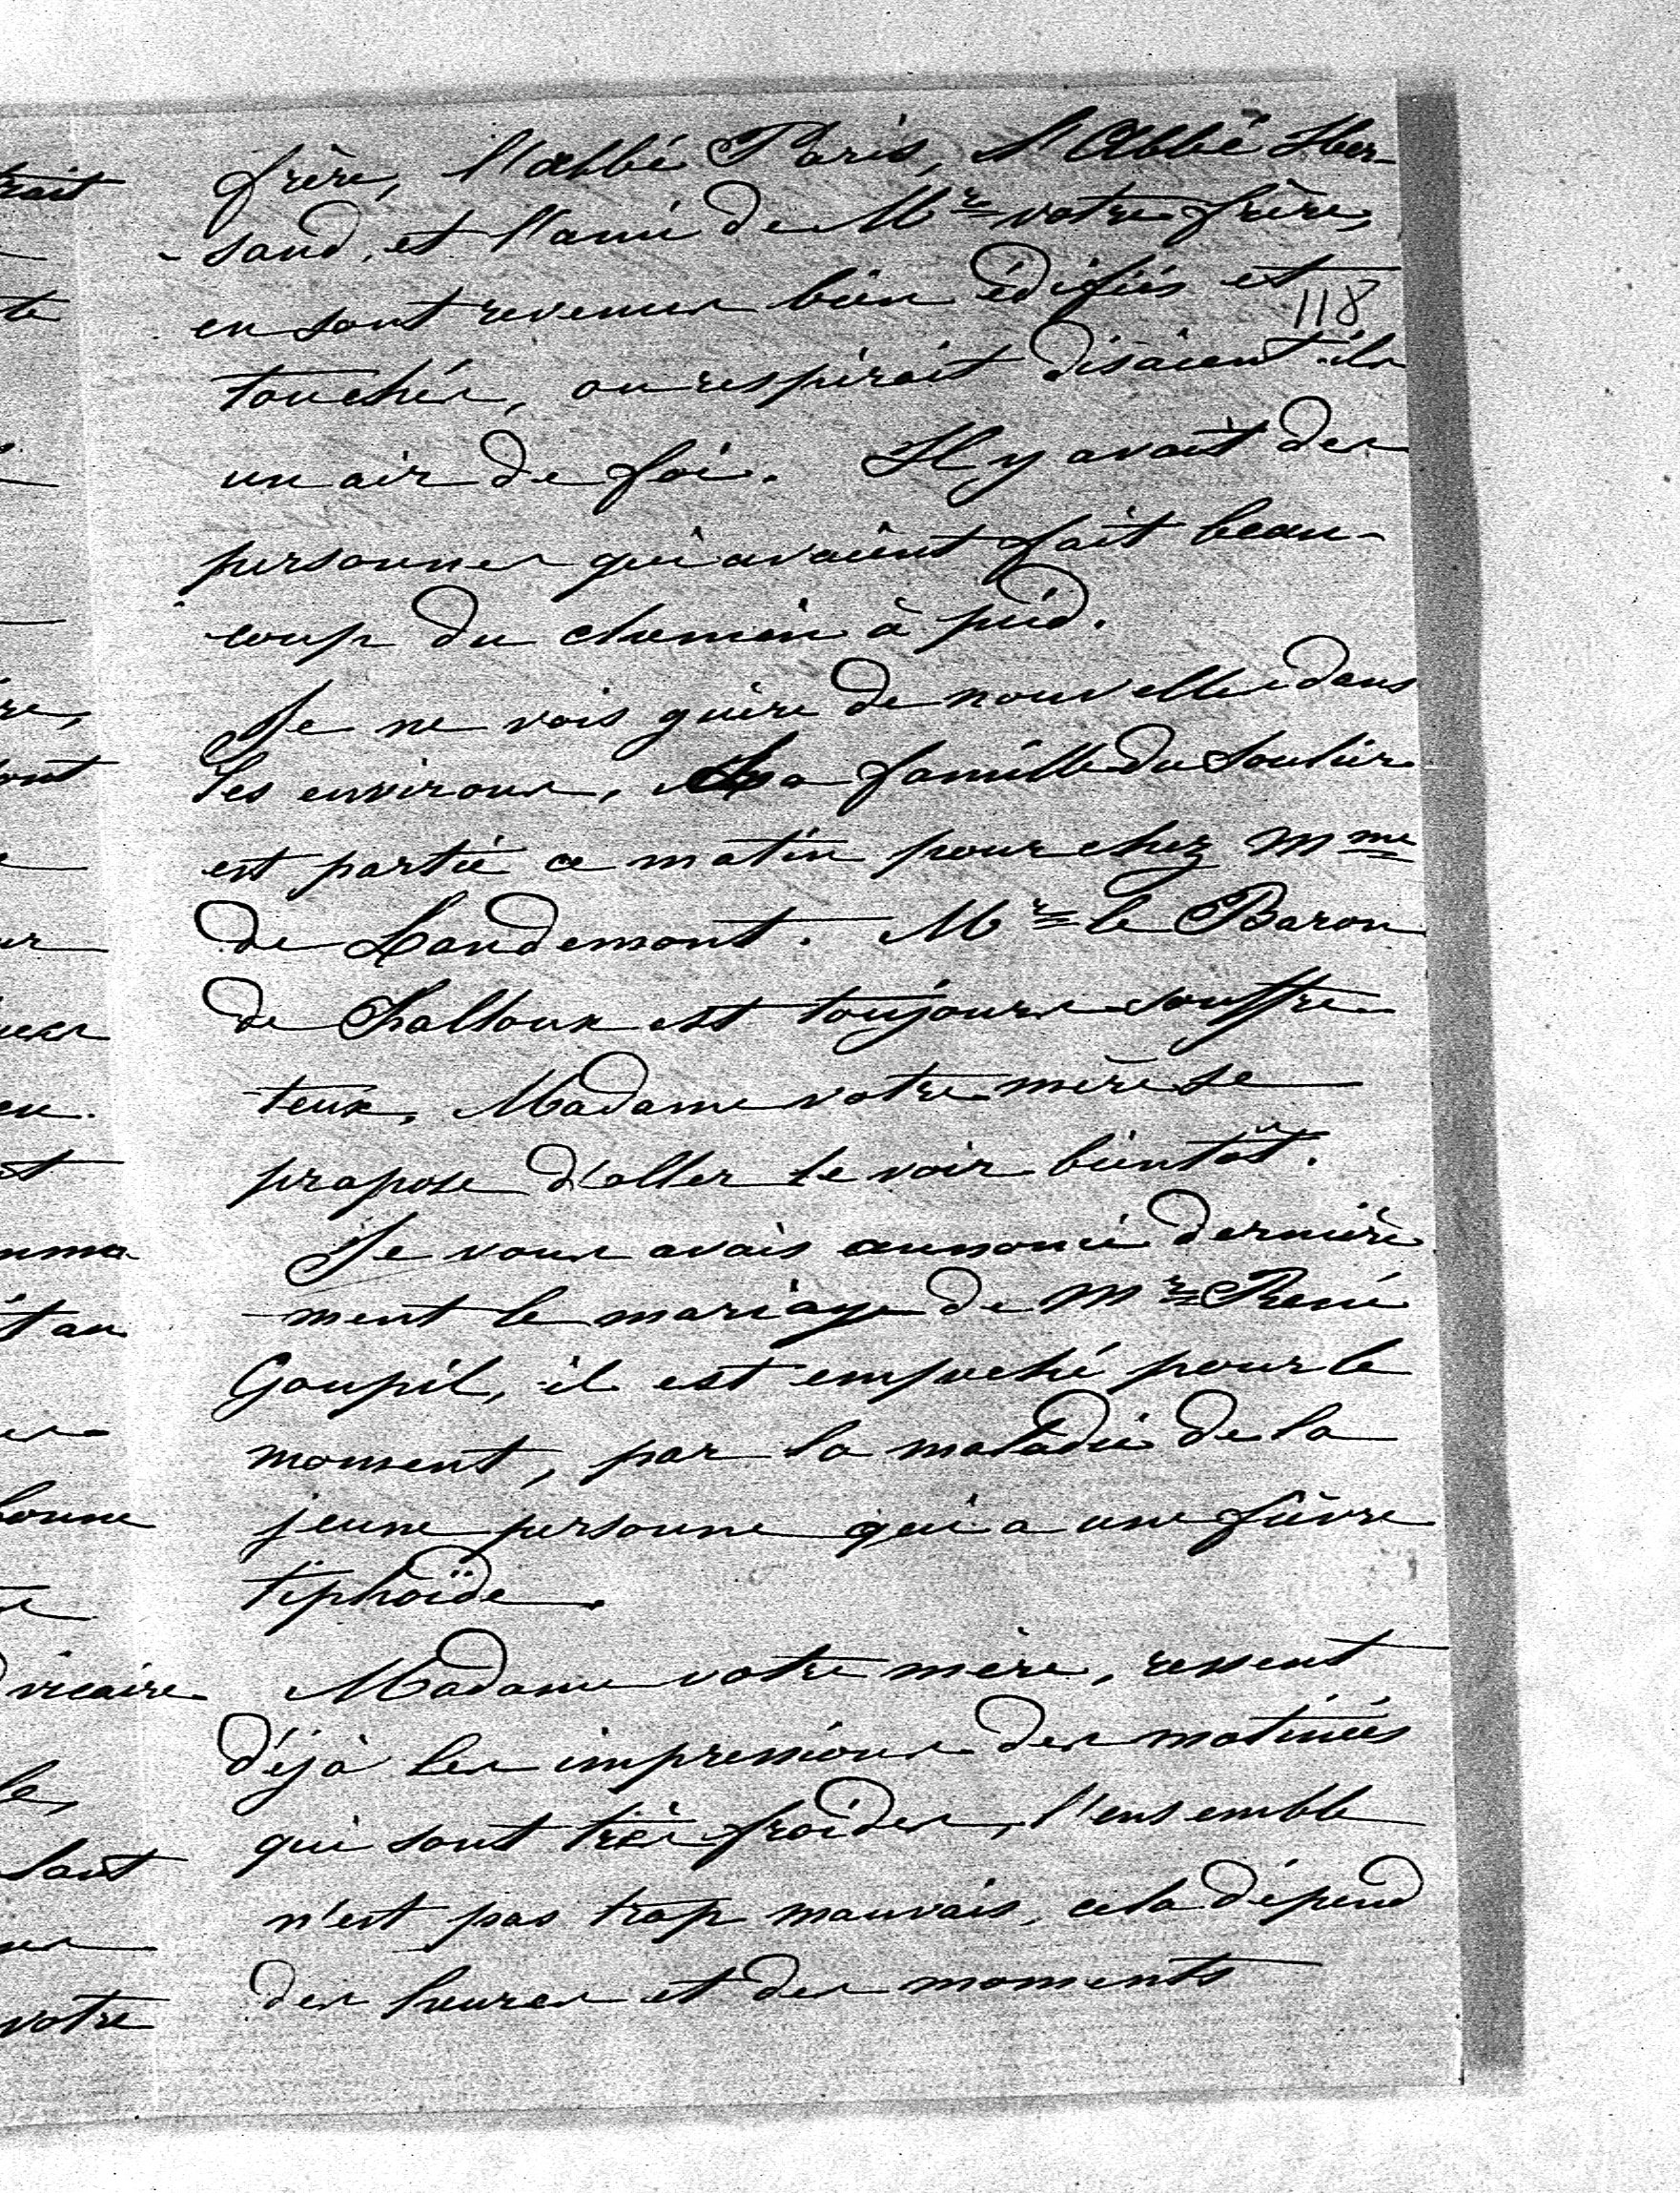 frère, l'abbé Paris, l'Abbé Her-
-sand, et l'ami de Mr votre frère,
en sont revenus bien édifiés et
118
touchés, on respirait disaient-ils
un air de foi. Il y avait des
personnes qui avaient fait beau-
coup du chemin à pied.
Je ne vois guère de nouvelles dans
les environs, la famille du Soulier
est partie ce matin pour chez Mme
de Landemont. Mr le Baron
de Challoux est toujours souffre
teux, Madame votre mère se
propose d'aller le voir bientôt.
Je vous avais annoncé dernière
-ment le mariage de Mr René
Goupil, il est empeché pour le
moment, par la maladie de la
jeune personne qui a une fièvre
tiphoïde.
Madame votre mère, ressent
déjà les impressions des matinées
qui sont très froides, l'ensemble
n'est pas trop mauvais, cela dépend
des heures et des moments
rait
te
re,
ont
eu.
t
t au
bonne
vicaire
le,
sont
votre